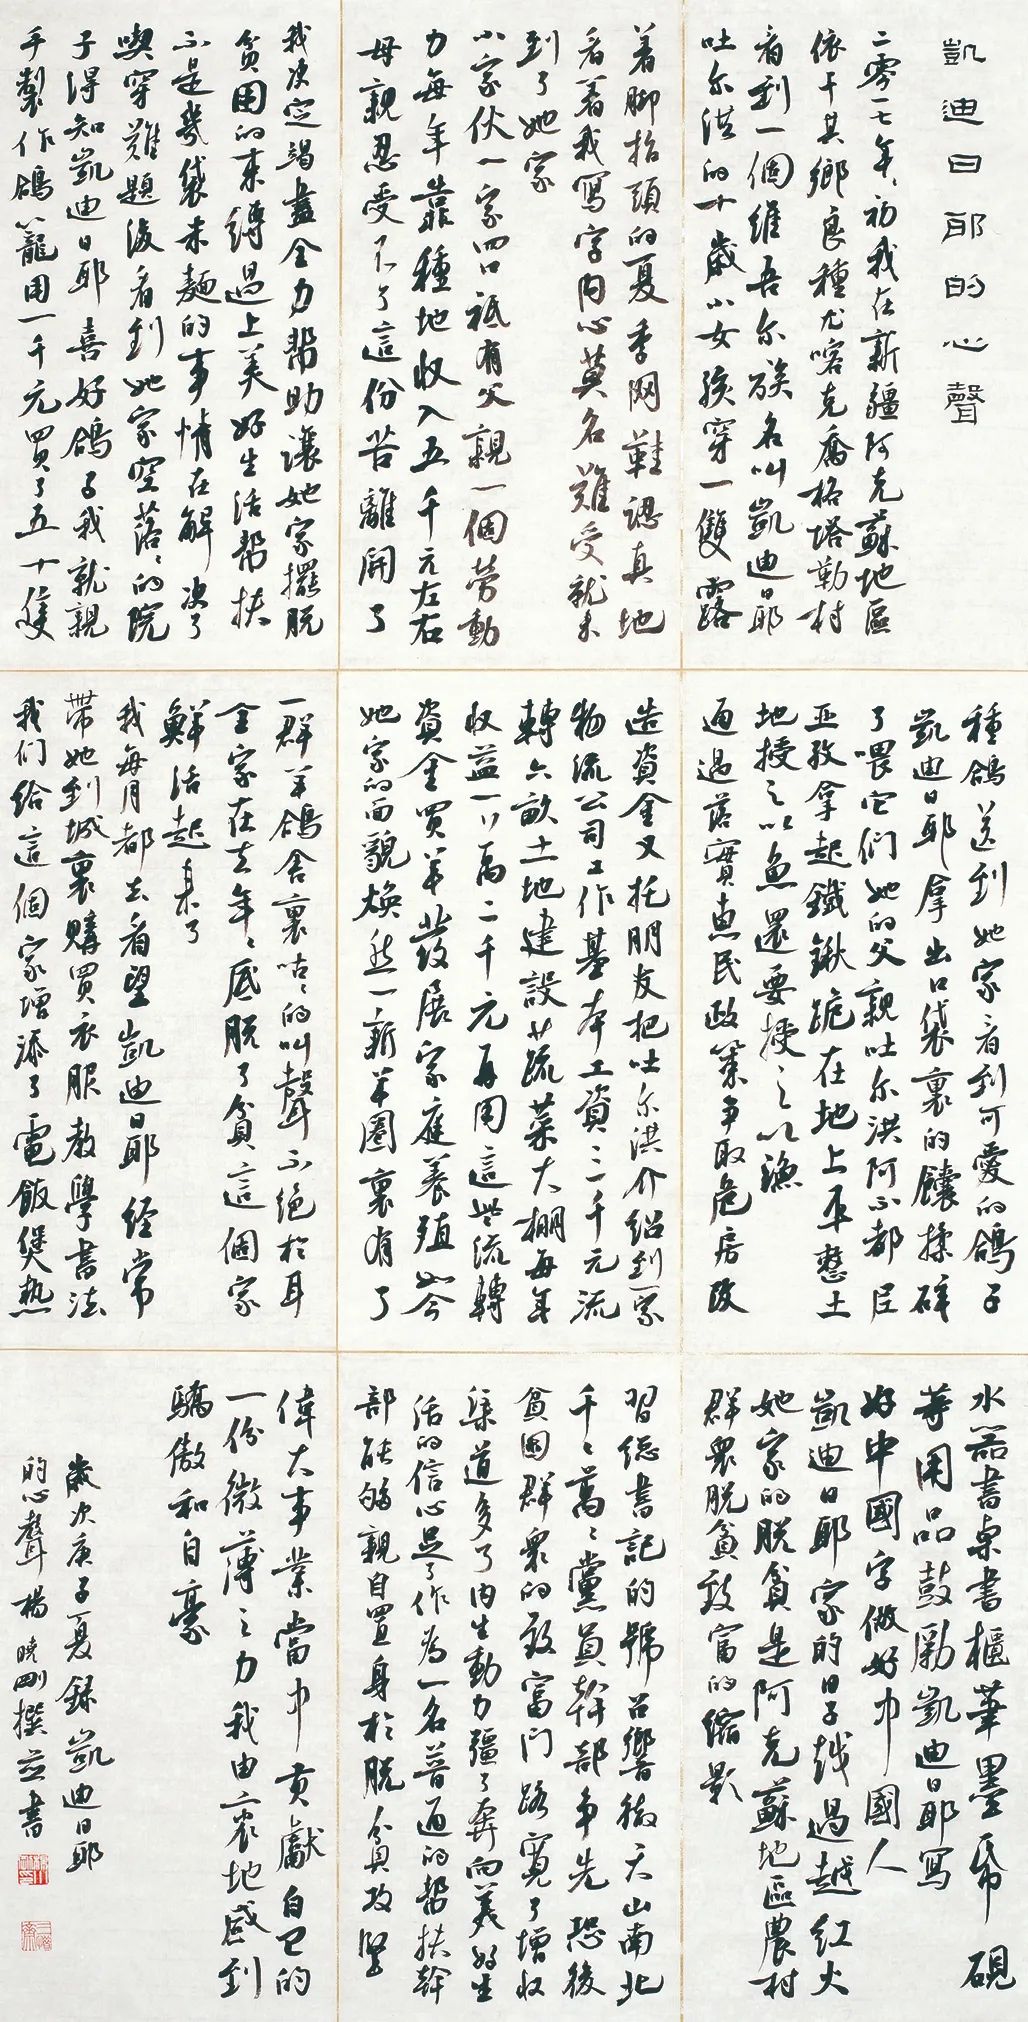 凱迪日耶的心聲
二零一七年初我在新疆阿克蘇地區
依干其鄉良種尤喀克喬格塔勒村
看到一個維吾尔族名叫凱迪日耶
吐尔洪的十歲小女孩穿一雙露
着脚指頭的夏季网鞋認真地
看着我寫字内心莫名難受就来
到了她家
小家伙一家四口衹有父親一個勞動
力每年靠種地收入五千元左右
母親忍受不了這份苦離開了
我决定竭盡全力帮助讓她家擺脱
貧困的束縛過上美好生活帮扶
不是幾袋米麵的事情在解决了
喫穿難題後看到她家空落々的院
子得知凱迪日耶喜好鴿子我就親
手製作鴿籠用一千元買了五十隻
種鴿送到她家看到可愛的鴿子
凱迪日耶拿出口袋裏的饢揉碎
了喂它们她的父親吐尔洪阿不都臣
亚孜拿起鐵鍬跪在地上平整土
地授之以魚還要授之以漁
通過落實惠民政策争取危房改
造資金又托朋友把吐尔洪介紹到一家
物流公司工作基本工資三千元流
轉六畝土地建設蔬菜大棚每年
收益一萬二千元再用這些流轉
資金買羊發展家庭養殖如今
她家的面貌焕然一新羊圈裏有了
一群羊鴿舍裏咕々的叫聲不绝於耳
全家在去年々底脱了貧這個家
鮮活起来了
我每月都去看望凱迪日耶经常
帶她到城裏購買衣服教學書法
我们給這個家增添了電飯煲热
水器書桌書櫃筆墨纸硯
等用品鼓勵凱迪日耶寫
好中國字做好中國人
凱迪日耶家的日子越過越红火
她家的脱貧是阿克蘇地區農村
群衆脱貧致富的缩影
習總書記的號召響徹天山南北
千々萬々黨員幹部争先恐後
貧困群衆的致富门路寬了增收
渠道多了内生動力彊了奔向美好生
活的信心足了作為一名普通的帮扶幹
部能够親自置身於脱貧攻堅
偉大事業當中貢獻自己的
一份微薄之力我由衷地感到
驕傲和自豪
歲次庚子夏録凱迪日耶
的心聲楊曉剛撰並書